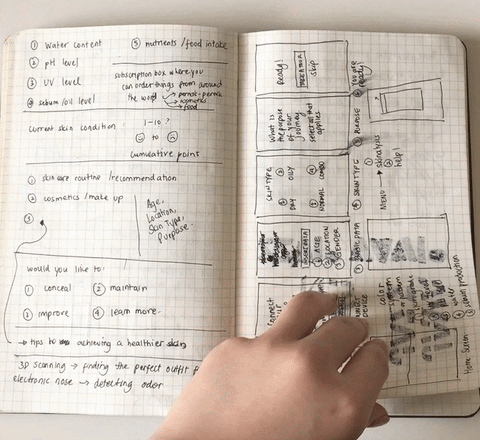 ① water content
② pH level
③ UV level
④ sebum/oil level
⑤ nutrients /food intake
subscription box where you
can order things from around
the world
→ cosmetics
→ food
current skin condition
1-10 ?
☺ to ☹
cumulative points
① skin care routine / recommendation
② cosmetics / make up
③
Age,
Location,
Skin Type,
Purpose.
would you like to:
① conceal ② maintain
③ improve ④ learn more.
→ tips to achieving a healthier skin
3D scanning → finding the perfect outfit
electronic nose → detecting odor
Ready!
skip
What is
the purpose
of your
journey
select all that
applies
SKIN TYPE
① NORMAL
② COMBO
③ DRY
④ OILY
① AGE
② LOCATION
③ GENDER
connect
⑥ You are
ready
⑤ PURPOSE
④ SKIN TYPE
③ BASIC DATA
DEVICE
MENU → skinalysis
help!
color
water
sebum production
Home Screen